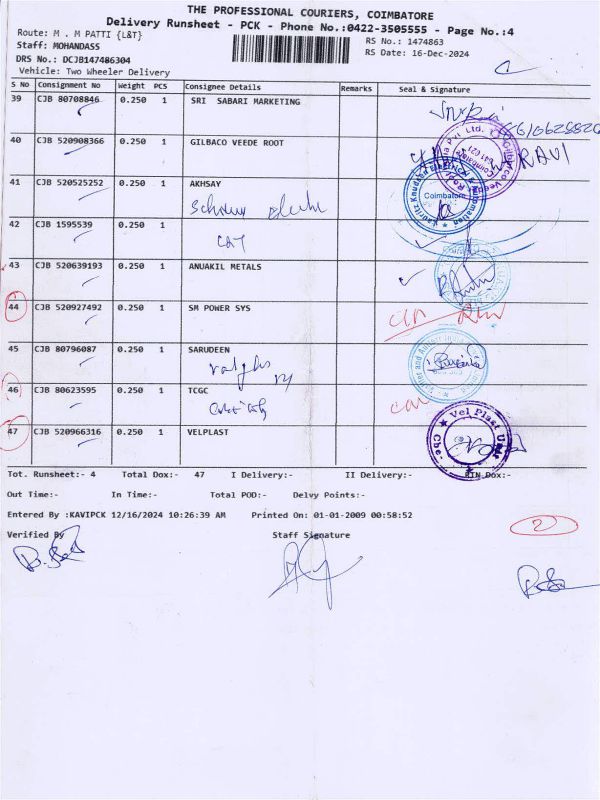 THE PROFESSIONAL COURIERS, COIMBATORE
Delivery Runsheet - PCK - Phone No.:0422-3505555 - Page No.:4
Route: M . M PATTI {L&T}
RS No.: 1474863
Staff: MOHANDASS
RS Date: 16-Dec-2024
DRS No.: DCJB147486304
Vehicle: Two Wheeler Delivery
S No Consignment No Weight PCS Consignee Details Remarks Seal & Signature
39 CJB 80708846 0.250 1 SRI SABARI MARKETING
40 CJB 520908366 0.250 1 GILBACO VEEDE ROOT
RAVI
41 CJB 520525252 0.250 1 AKHSAY
Coimbatore
42 CJB 1595539 0.250 1
43 CJB 520639193 0.250 1 ANUAKIL METALS
44 CJB 520927492 0.250 1 SM POWER SYS
45 CJB 80796087 0.250 1 SARUDEEN
46 CJB 80623595 0.250 1 TCGC
47 CJB 520966316 0.250 1 VELPLAST
Vel Plast Unit
Tot. Runsheet:- 4 Total Dox:- 47 I Delivery:- II Delivery:- RTN Dox:-
Out Time:- In Time:- Total POD:- Delvy Points:-
Entered By :KAVIPCK 12/16/2024 10:26:39 AM Printed On: 01-01-2009 00:58:52
2
Verified By Staff Signature